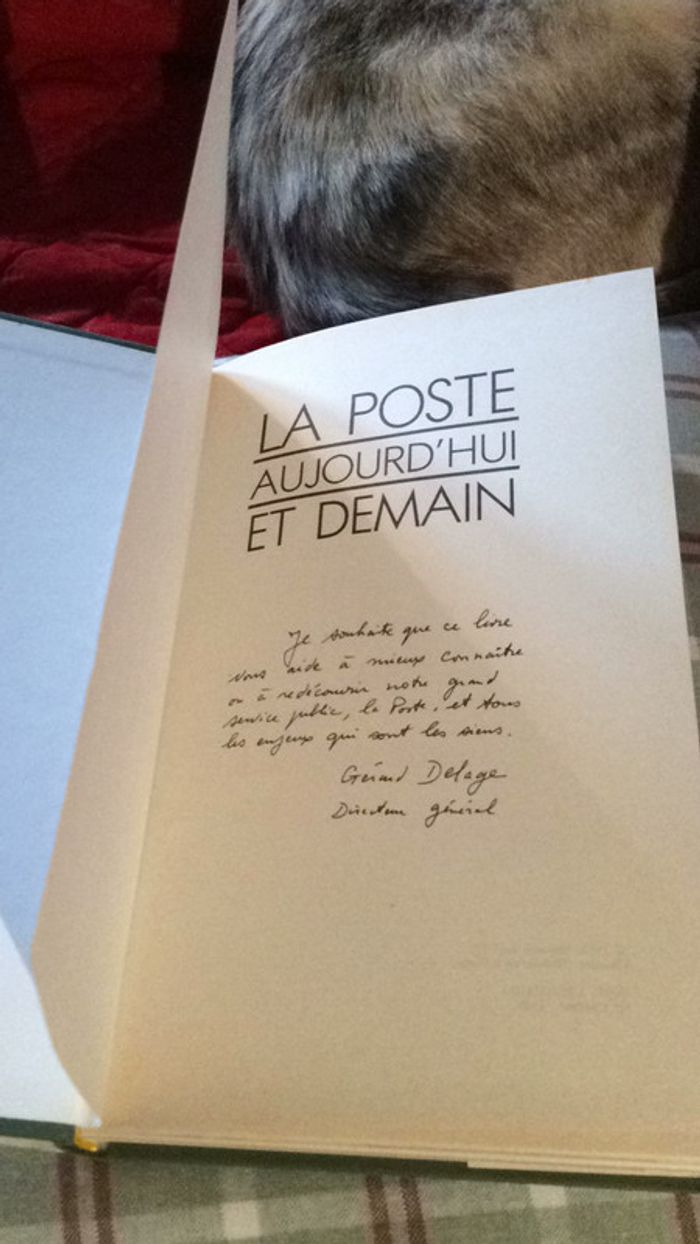 LA POSTE
AUJOURD'HUI
ET DEMAIN
Je souhaite que ce livre
vous aide à mieux connaître
ou à redécouvrir notre grand
service public, la Poste, et tous
les enjeux qui sont les siens.
Gérard Delage
Directeur général